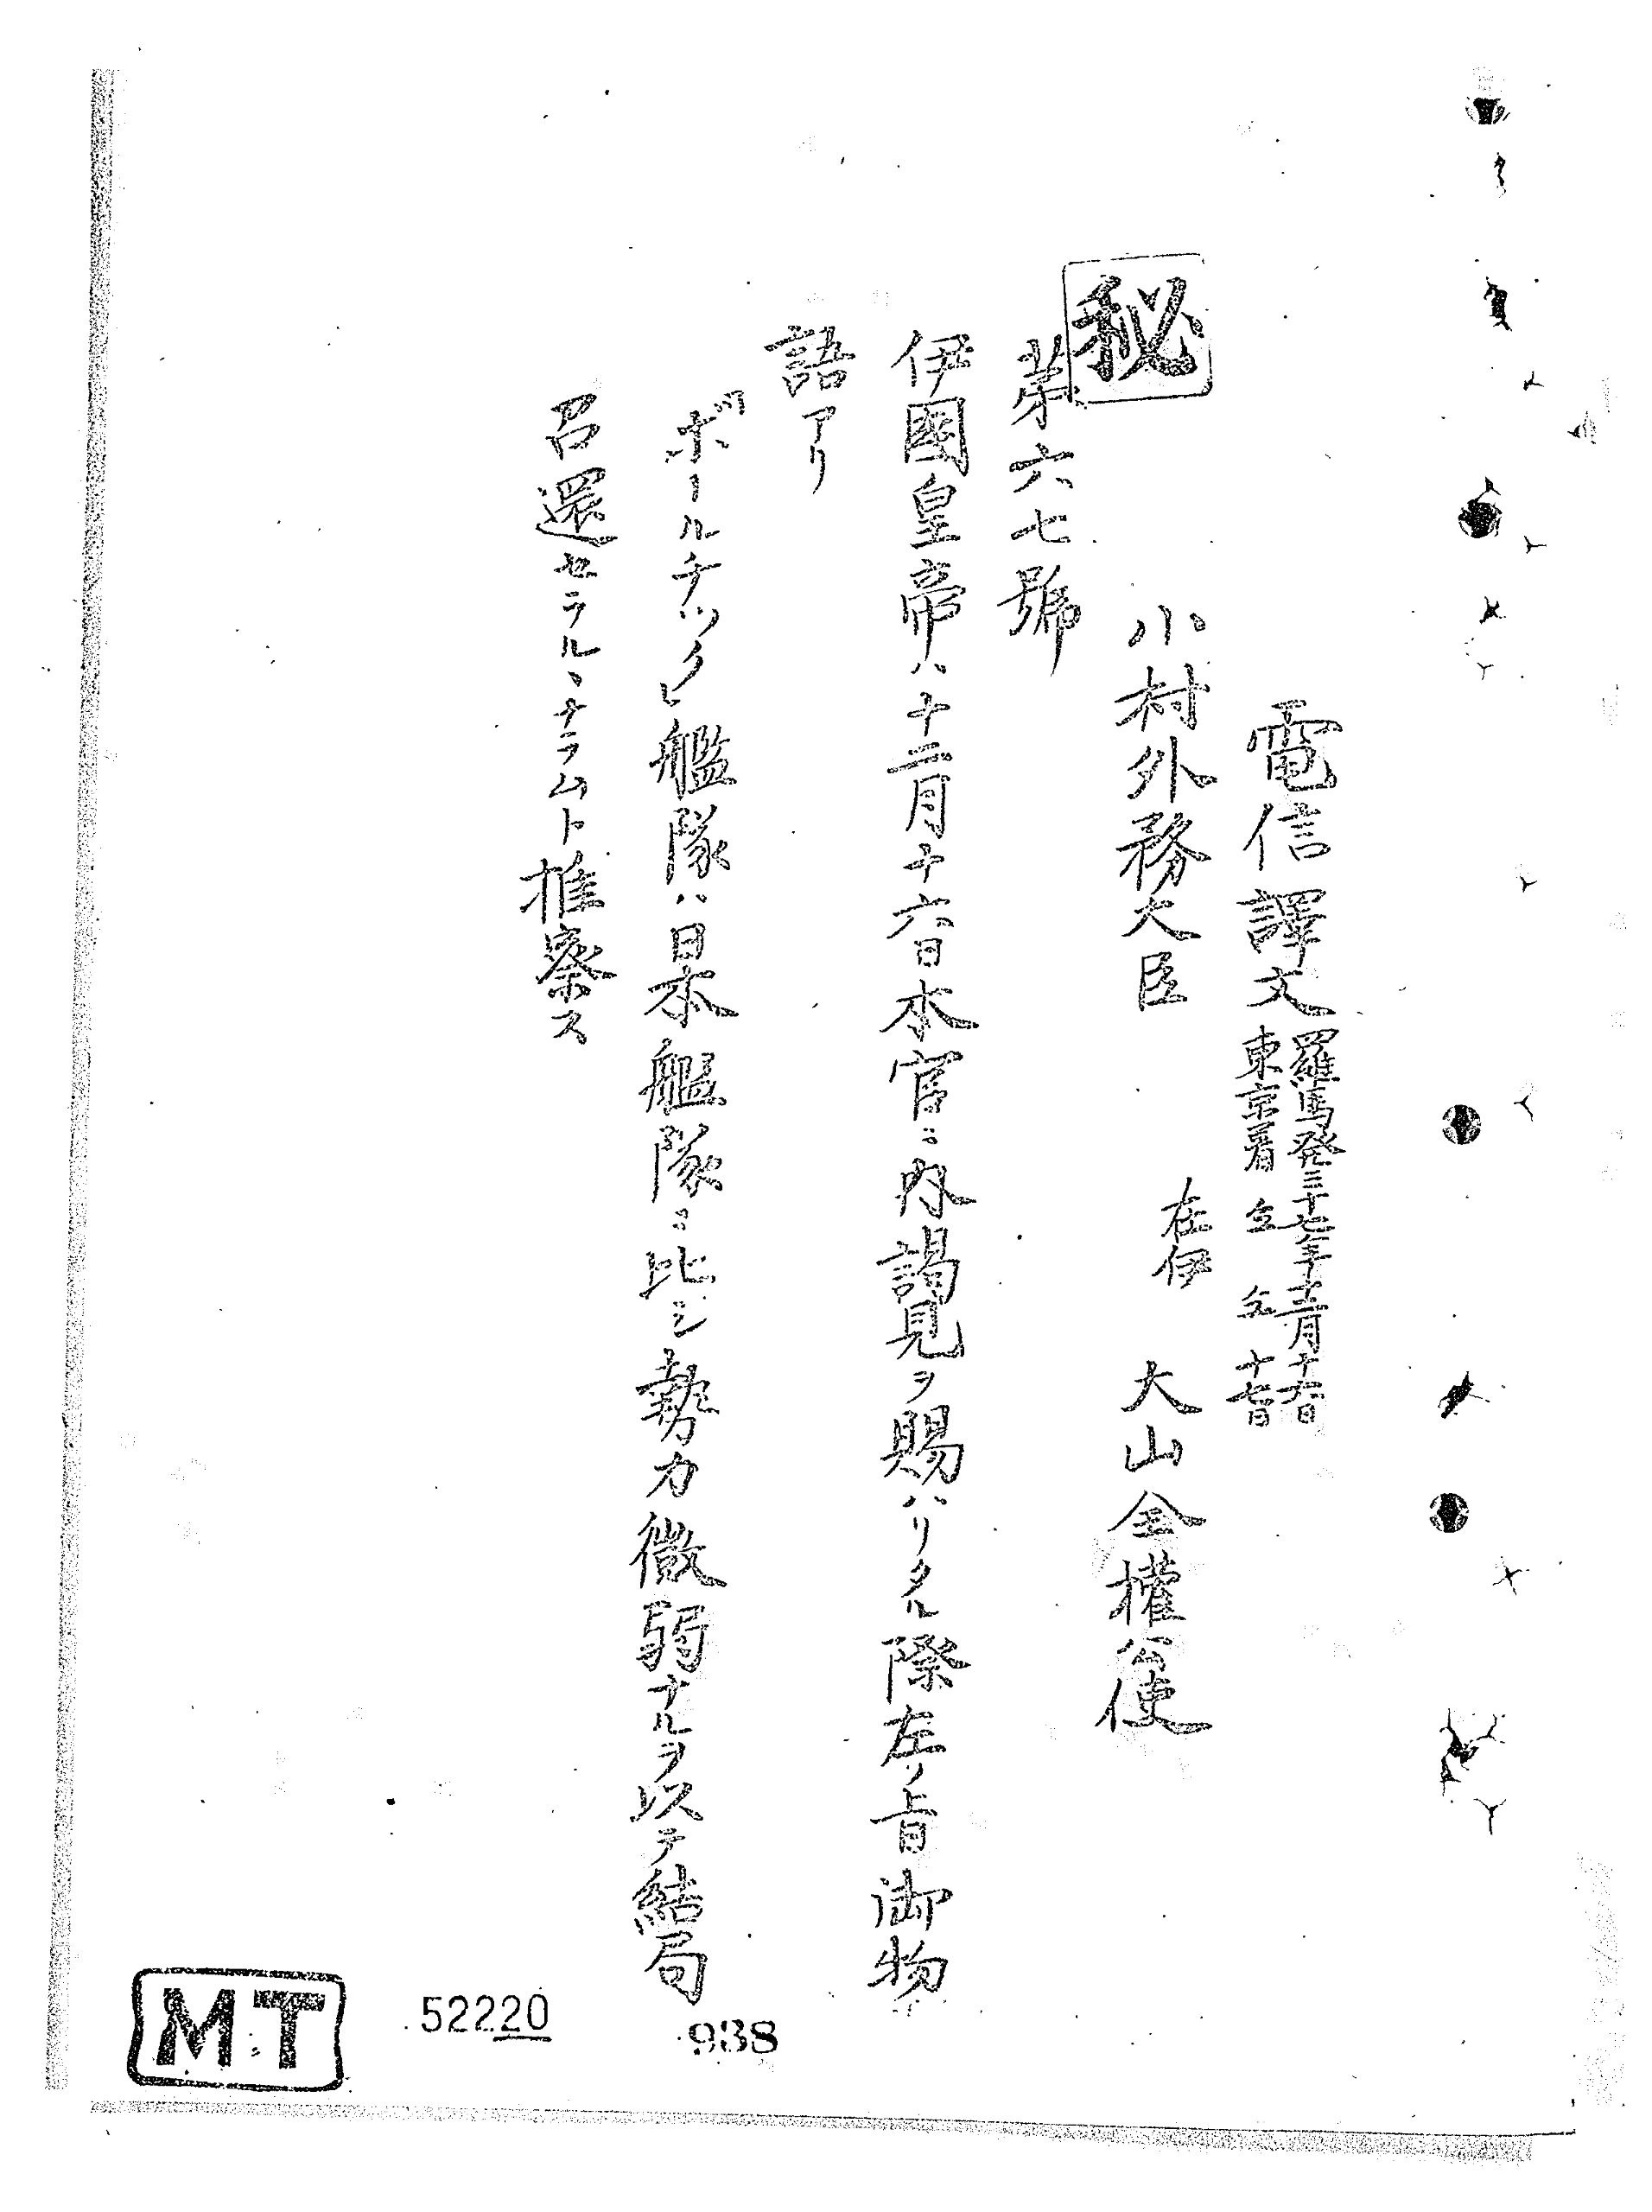 電信譯文 羅馬發 三十七年十二月十六日
東京着 仝 仝 十七日
小村外務大臣 在伊 大山全權公使
秘
第六七號
伊國皇帝ハ十二月十六日本官ニ内謁見ヲ賜ハリタル際左ノ旨御物
語アリ
「ボールチック」艦隊ハ日本艦隊ニ比シ勢力微弱ナルヲ以テ結局
召還セラルヽナラムト推察ス
MT 52220 938